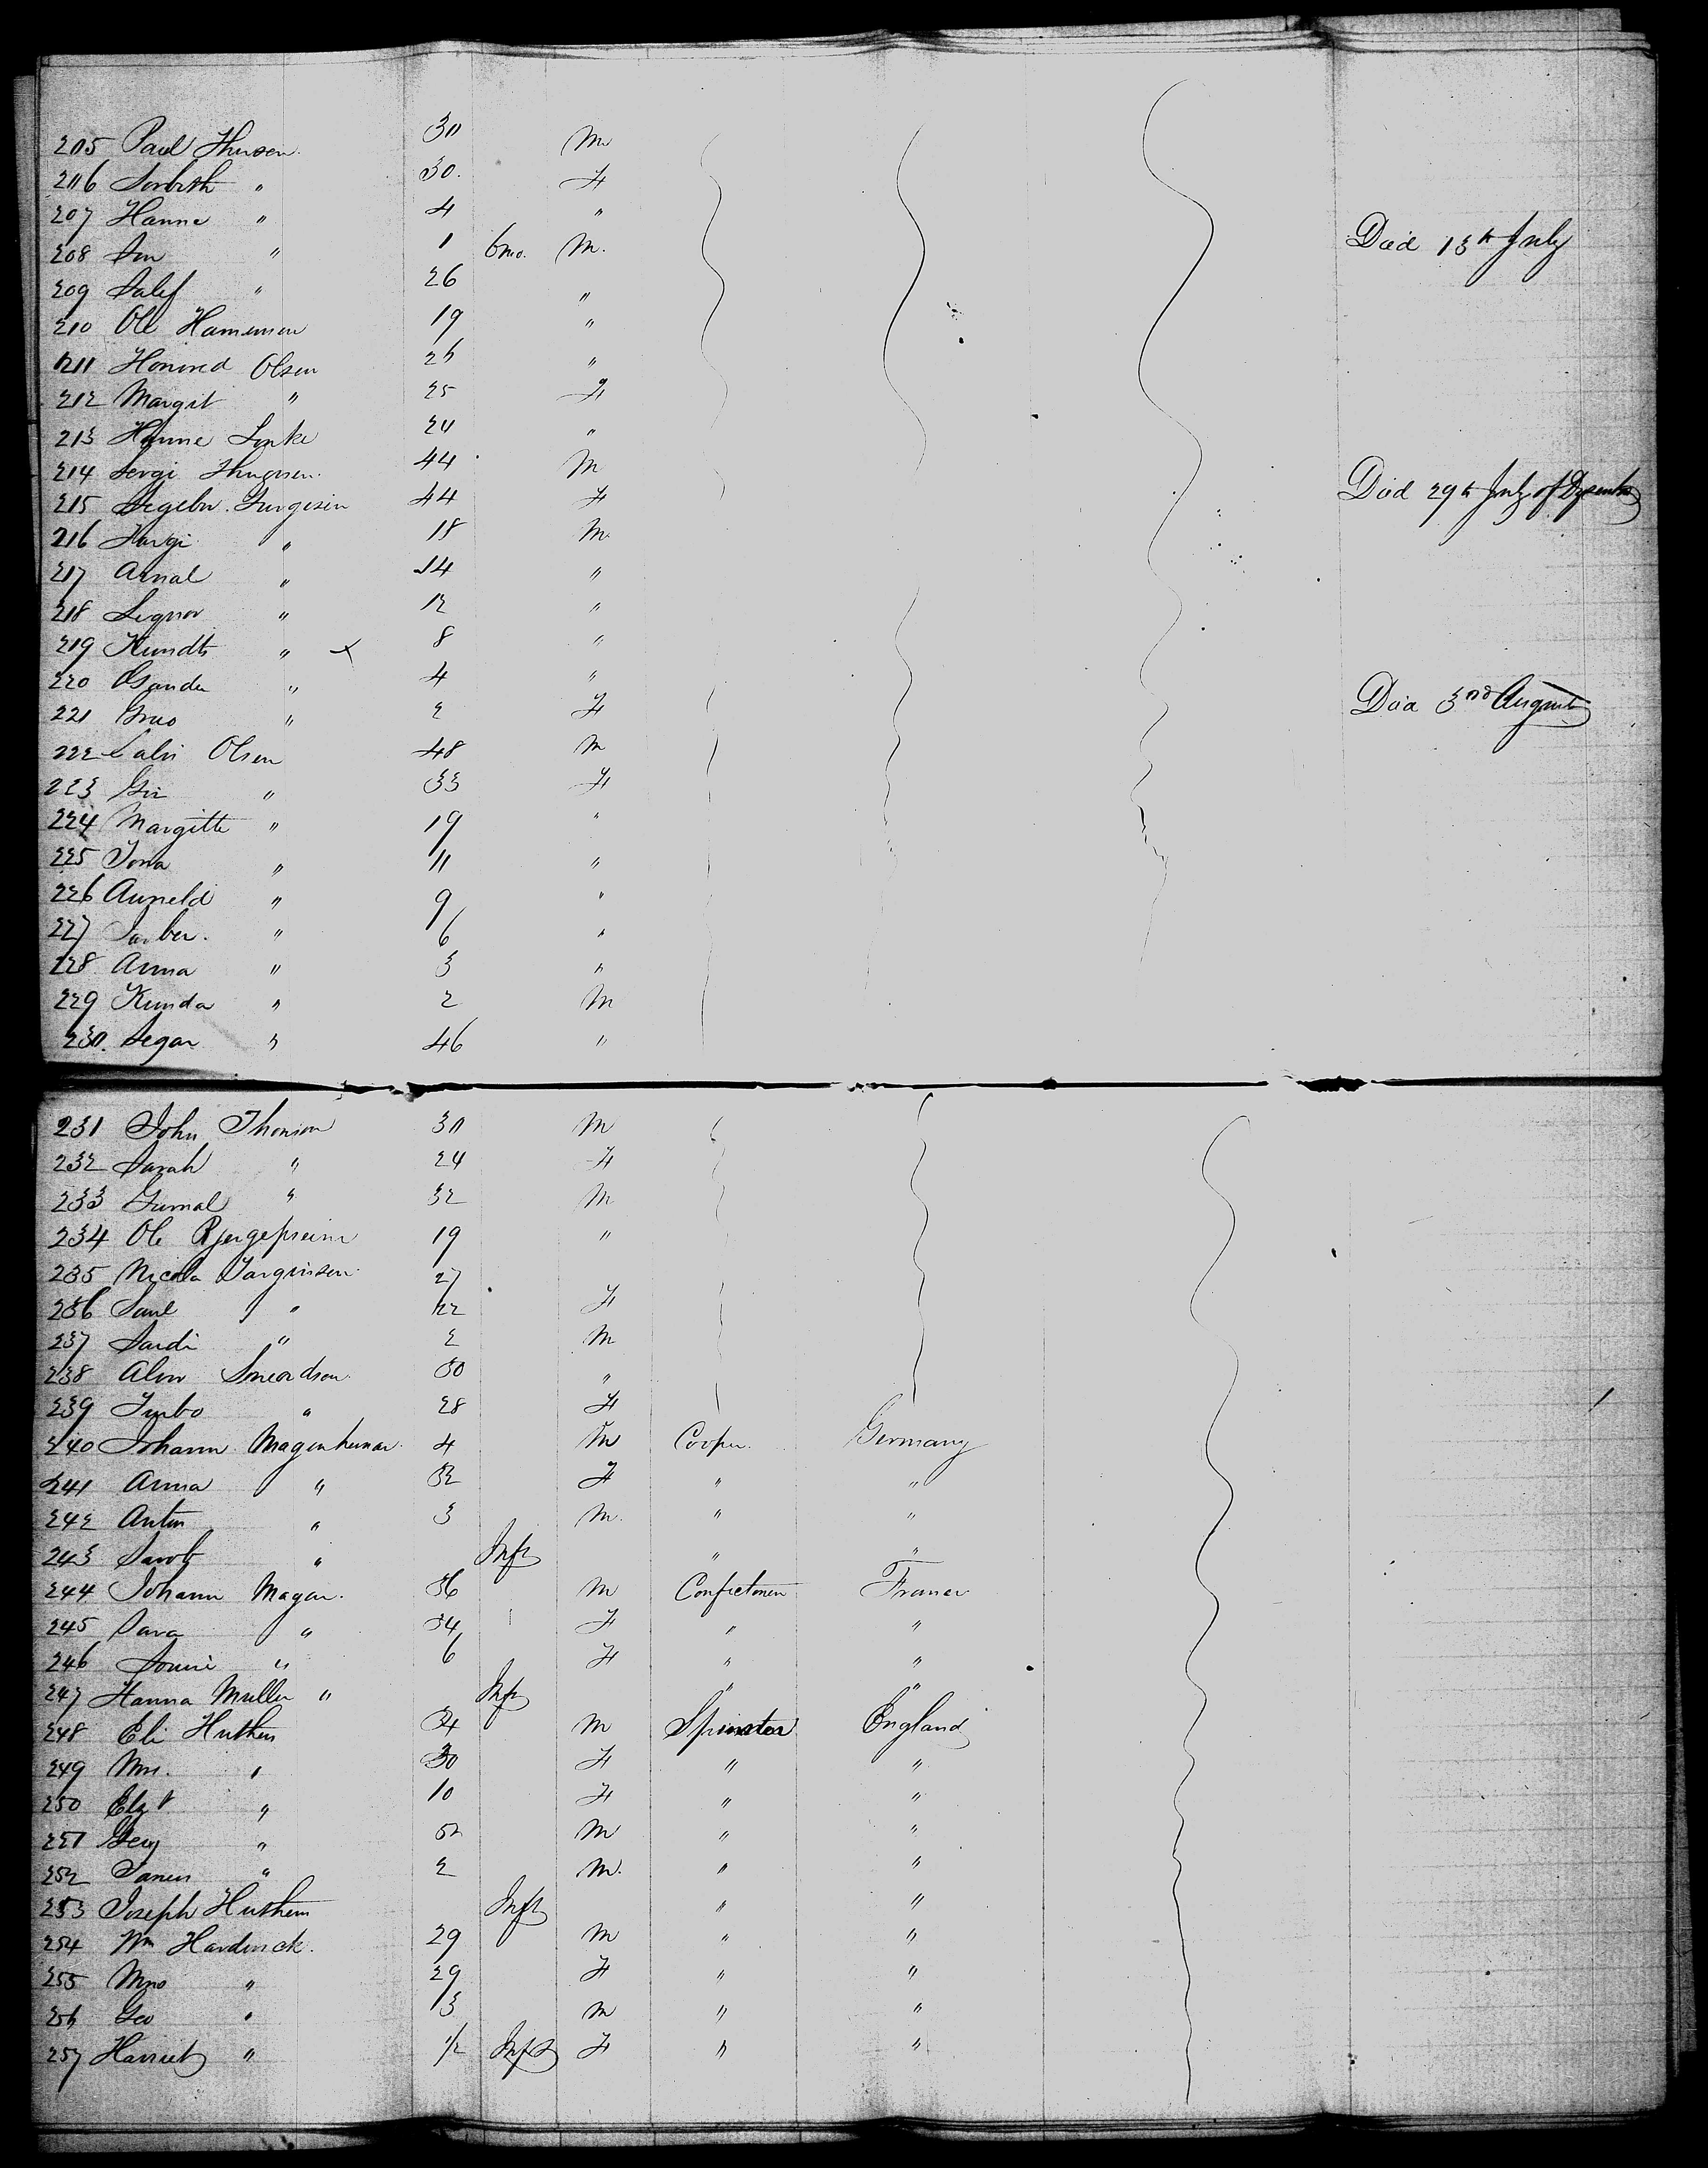 205 Paul Thusen. 30 M
206 Sorbith " 30. F
207 Hanne " 4 "
208 Son " 1 6 mo. M. Died 13th July
209 Salef " 26 "
210 Ole Hamunson 19 "
211 Honored Olsen 26 "
212 Margit " 25 F
213 Hanne Linke 20 "
214 Sergi 44 M
215 Segebr. Gurgesin 44 F Died 29th July of Dysentery
216 Hargi " 18 M
217 Arnal " 14 "
218 Signor " 12 "
219 Kundts " x 8 "
220 Gsander " 4 "
221 Gruo " 2 F Died 3rd August
222 Salvi Olsen 48 M
223 Gri " 33 F
224 Margitte " 19 "
225 Tona " 11 "
226 Auneld " 9 "
227 Tarber. " 6 "
228 Anna " 3 "
229 Kunda " 2 M
230. Segar " 46 "
231 John Thonson 30 M
232 Sarah " 24 F
233 Gumal " 32 M
234 Ole 19 "
235 Nicola Jorginsen 27
236 Sane " 22 F
237 Sardi " 2 M
238 Alow Sneardson 30 "
239 Turbo " 28 F
240 Johann Magenheimar. 4 M Cooper. Germany
241 Anna " 32 F " "
242 Anton " 3 M. " "
243 Jacob " Inft " "
244 Johann Magen. 36 M Confectioner France
245 Sara " 34 F " "
246 Louise " 6 F " "
247 Hanna Muller " Inft " "
248 Eli Huthen 34 M Spinster England
249 Mrs. " 30 F " "
250 Elzt " 10 F " "
251 Geog " 5 M " "
252 James " 2 M. " "
253 Joseph Huthem Inft " "
254 Wm Hardwick. 29 M " "
255 Mrs " 29 F " "
256 Geo " 3 M " "
257 Harriet " 1/2 Inft F " "